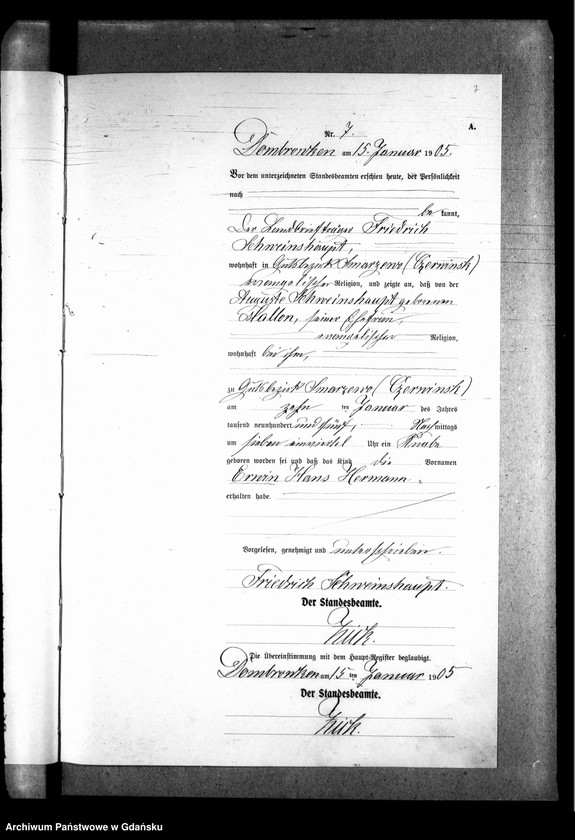 7
A.
Nr. 7.
Dombrowken am 15. Januar 1905.
Vor dem unterzeichneten Standesbeamten erschien heute, der Persönlichkeit
nach
be kannt,
Der Landbriefträger Friedrich
Schweinshaupt,
wohnhaft in Gutsbezirk Smarzewo (Czerwinsk)
evangelischer Religion, und zeigte an, daß von der
Auguste Schweinshaupt geborenen
seiner Ehefrau,
evangelischer Religion,
wohnhaft bei ihm,
zu Gutsbezirk Smarzewo (Czerwinsk)
am zehn ten Januar des Jahres
tausend neunhundert und fünf, Nachmittags
um sieben einviertel Uhr ein Knabe
geboren worden sei und daß das Kind die Vornamen
Erwin Hans Hermann
erhalten habe.
Vorgelesen, genehmigt und unterschrieben.
Friedrich Schweinshaupt.
Der Standesbeamte.
Die Übereinstimmung mit dem Haupt-Register beglaubigt.
Dombrowken am 15 ten Januar 1905
Der Standesbeamte.
Archiwum Państwowe w Gdańsku